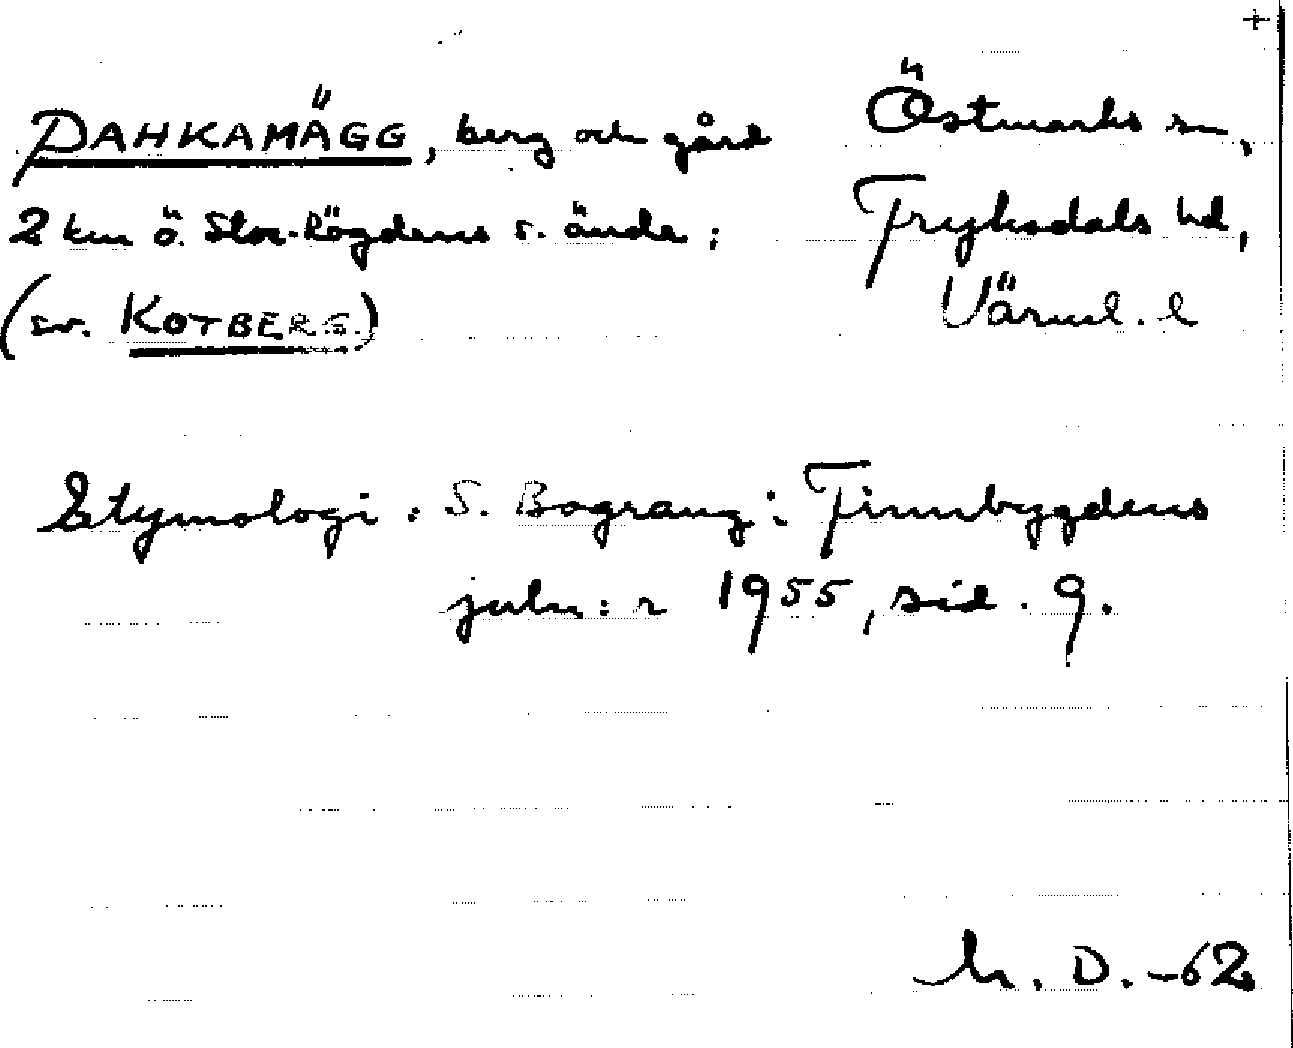 +
PAHKAMÄGG, berg och gård
2 km ö. Stor-Rögdens s. ände;
(sv. KOTBERG.)
Östmarks sn,
Fryksdals hd,
Värml. l
Etymologi: S. Bograng: Finnbygdens
juln:r 1955, sid. 9.
D. -62